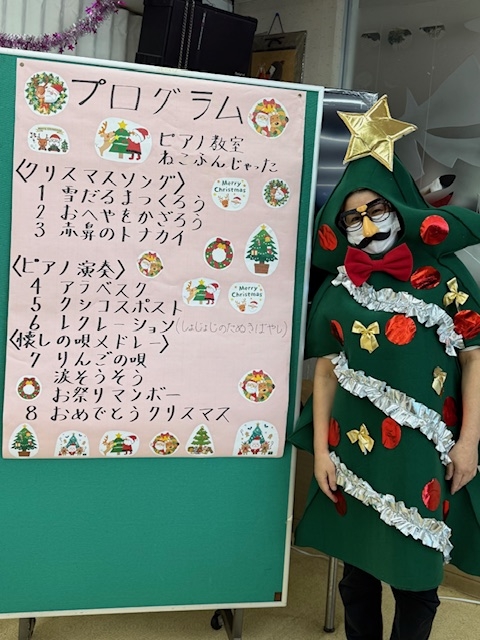 プログラム
ピアノ教室
ねこふんじゃった
〈クリスマスソング〉
1 雪だるまつくろう
2 おへやをかざろう
3 赤鼻のトナカイ
Merry Christmas
〈ピアノ演奏〉
4 アラベスク
5 クシコスポスト
Merry Christmas
6 レクレーション(しょじょじのたぬきばやし)
〈懐しの唄メドレー〉
7 りんごの唄
涙そうそう
お祭りマンボー
8 おめでとうクリスマス